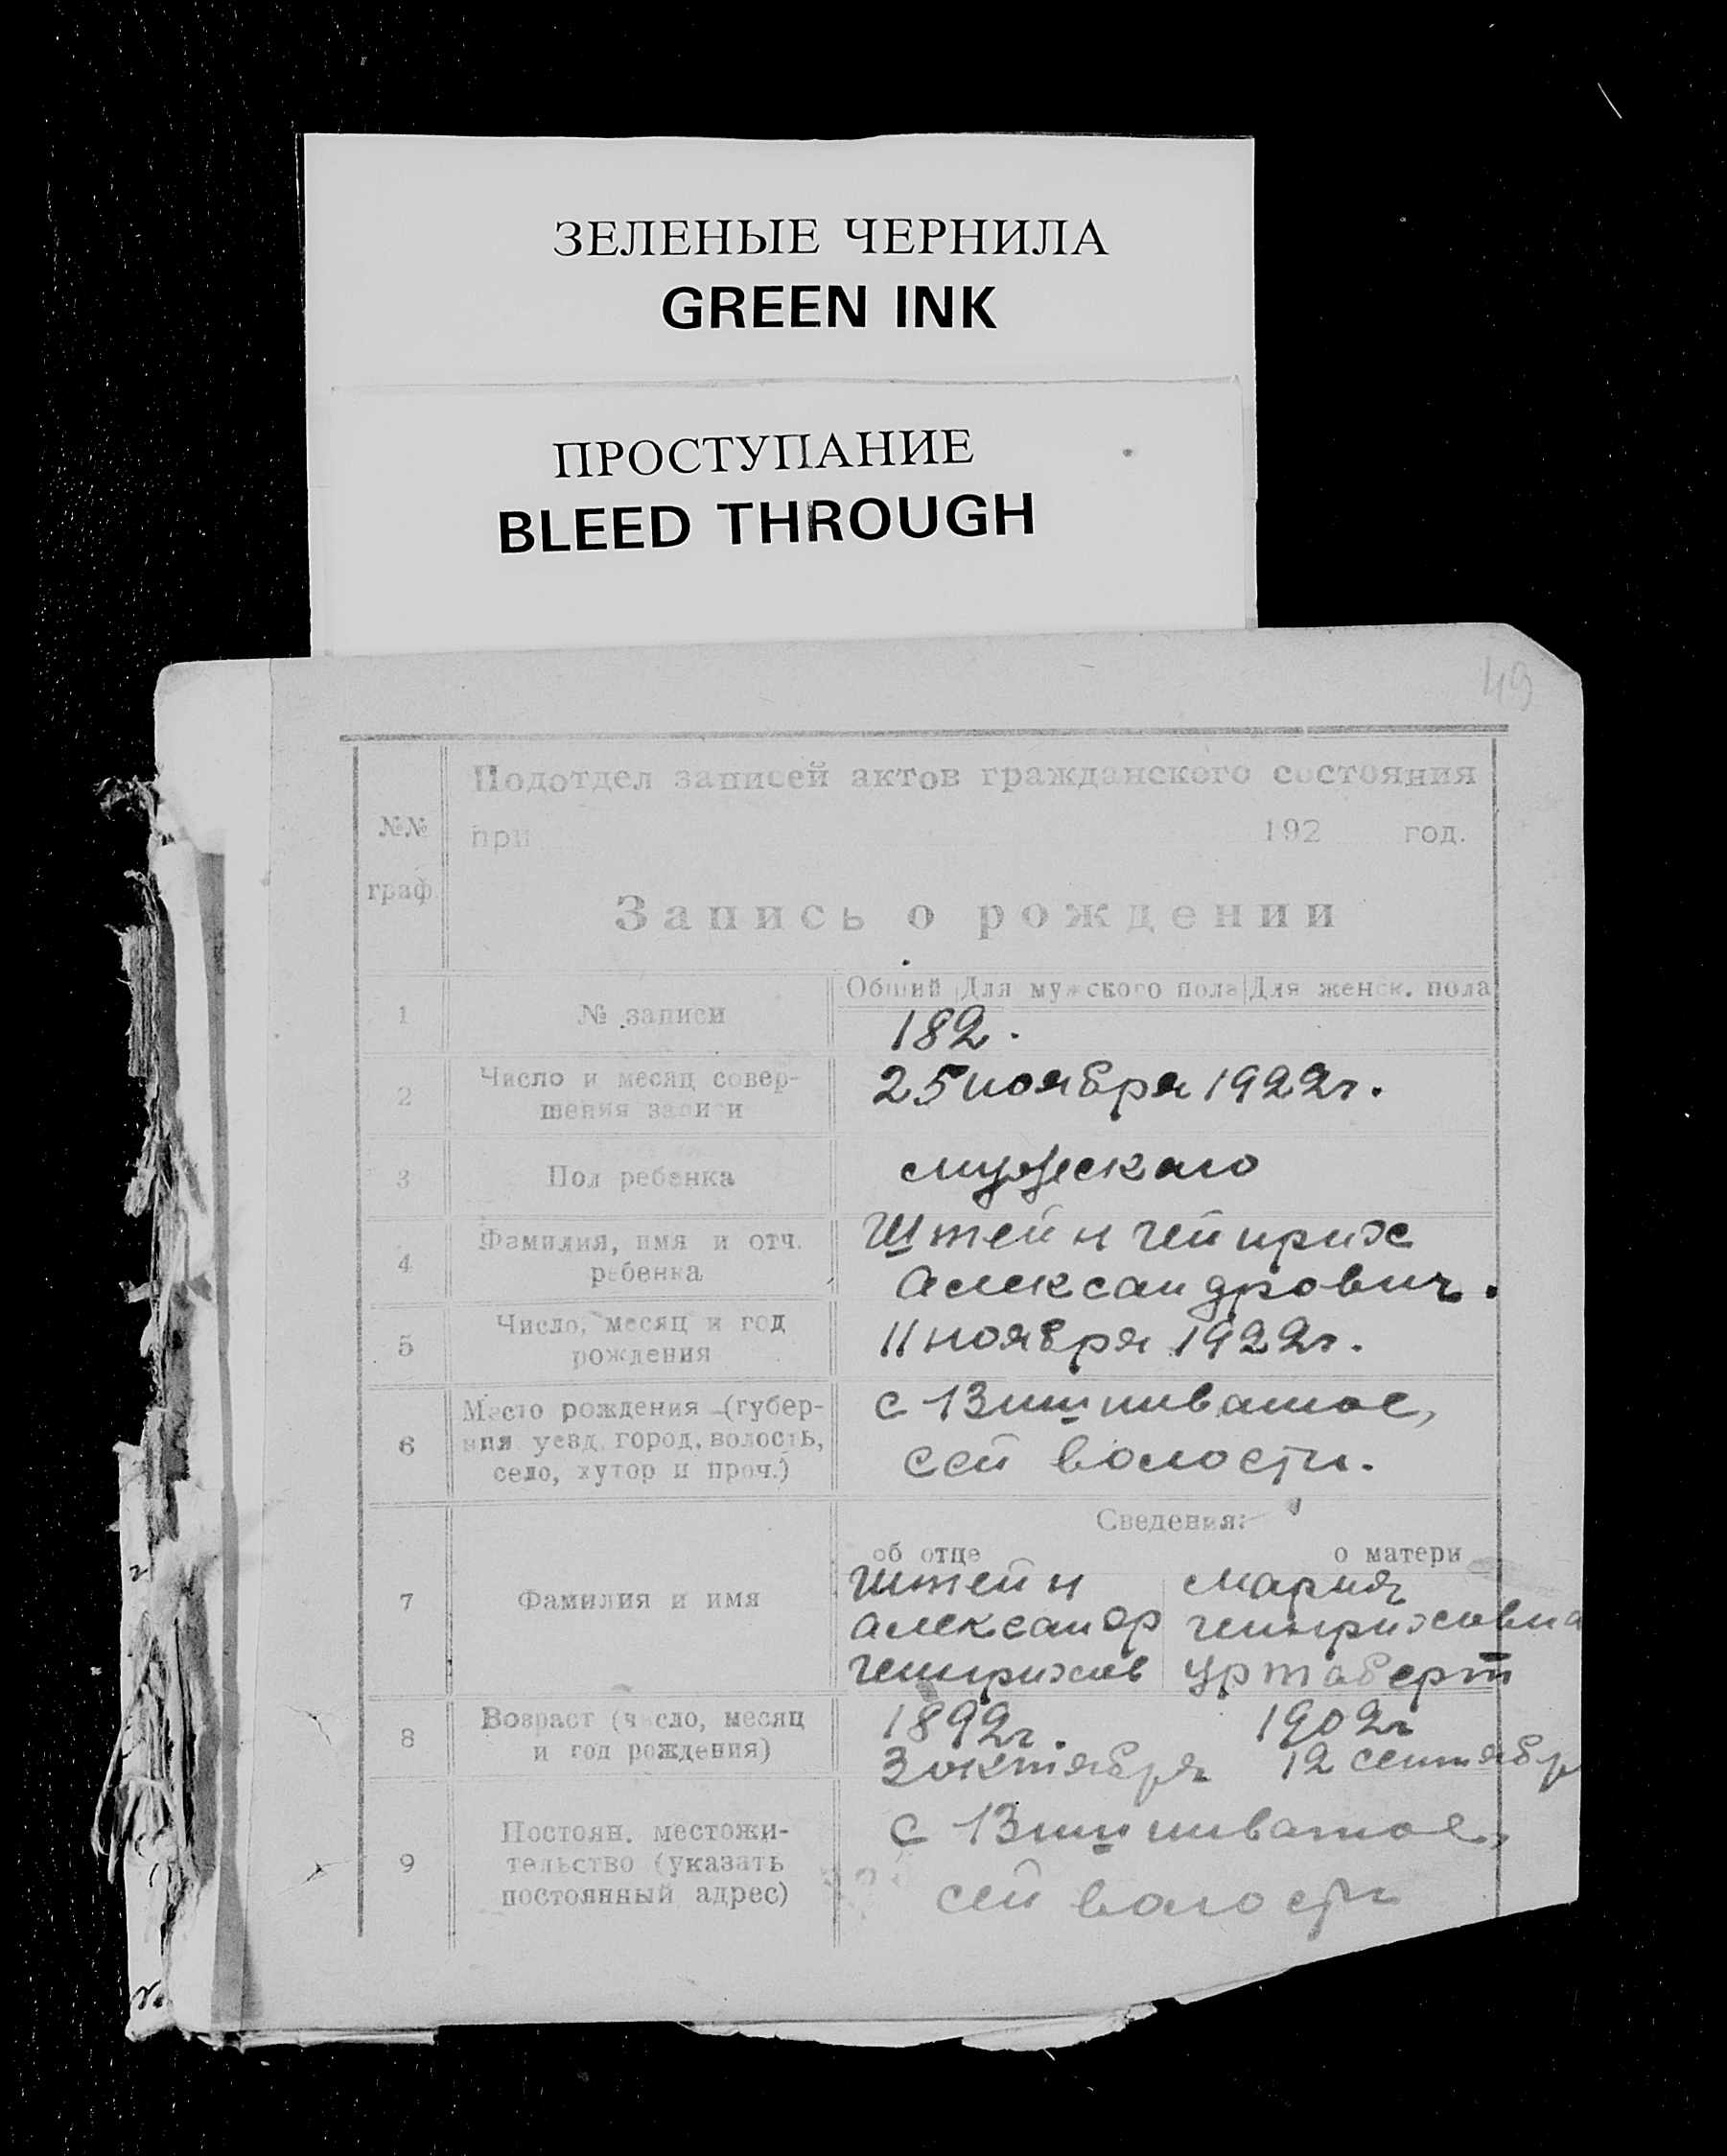 ЗЕЛЕНЫЕ ЧЕРНИЛА
GREEN INK
ПРОСТУПАНИЕ
BLEED THROUGH
49
Подотдел записей актов гражданского состояния
№№
при 192 год.
граф.
Запись о рождении
Общий Для мужского пола Для женск. пола
1 № записи 182.
2 Число и месяц совер-
шения записи
25 ноября 1922г.
3 Пол ребенка мужескаго
4 Фамилия, имя и отч.
ребенка
Штейн Гейнрих
Александрович.
5 Число, месяц и год
рождения
11 ноября 1922г.
6 Место рождения (губер-
ния уезд, город, волость,
село, хутор и проч.)
с Вишниватое,
сей волости.
Сведения:
об отце о матери
7 Фамилия и имя
Штейн Мария
Александр Гейнриховна
Гейнрихов
8 Возраст (число, месяц
и год рождения)
1892г. 1902г
3 октября 12 сентябр
9 Постоян. местожи-
тельство (указать
постоянный адрес)
с Вишниватое,
сей волости